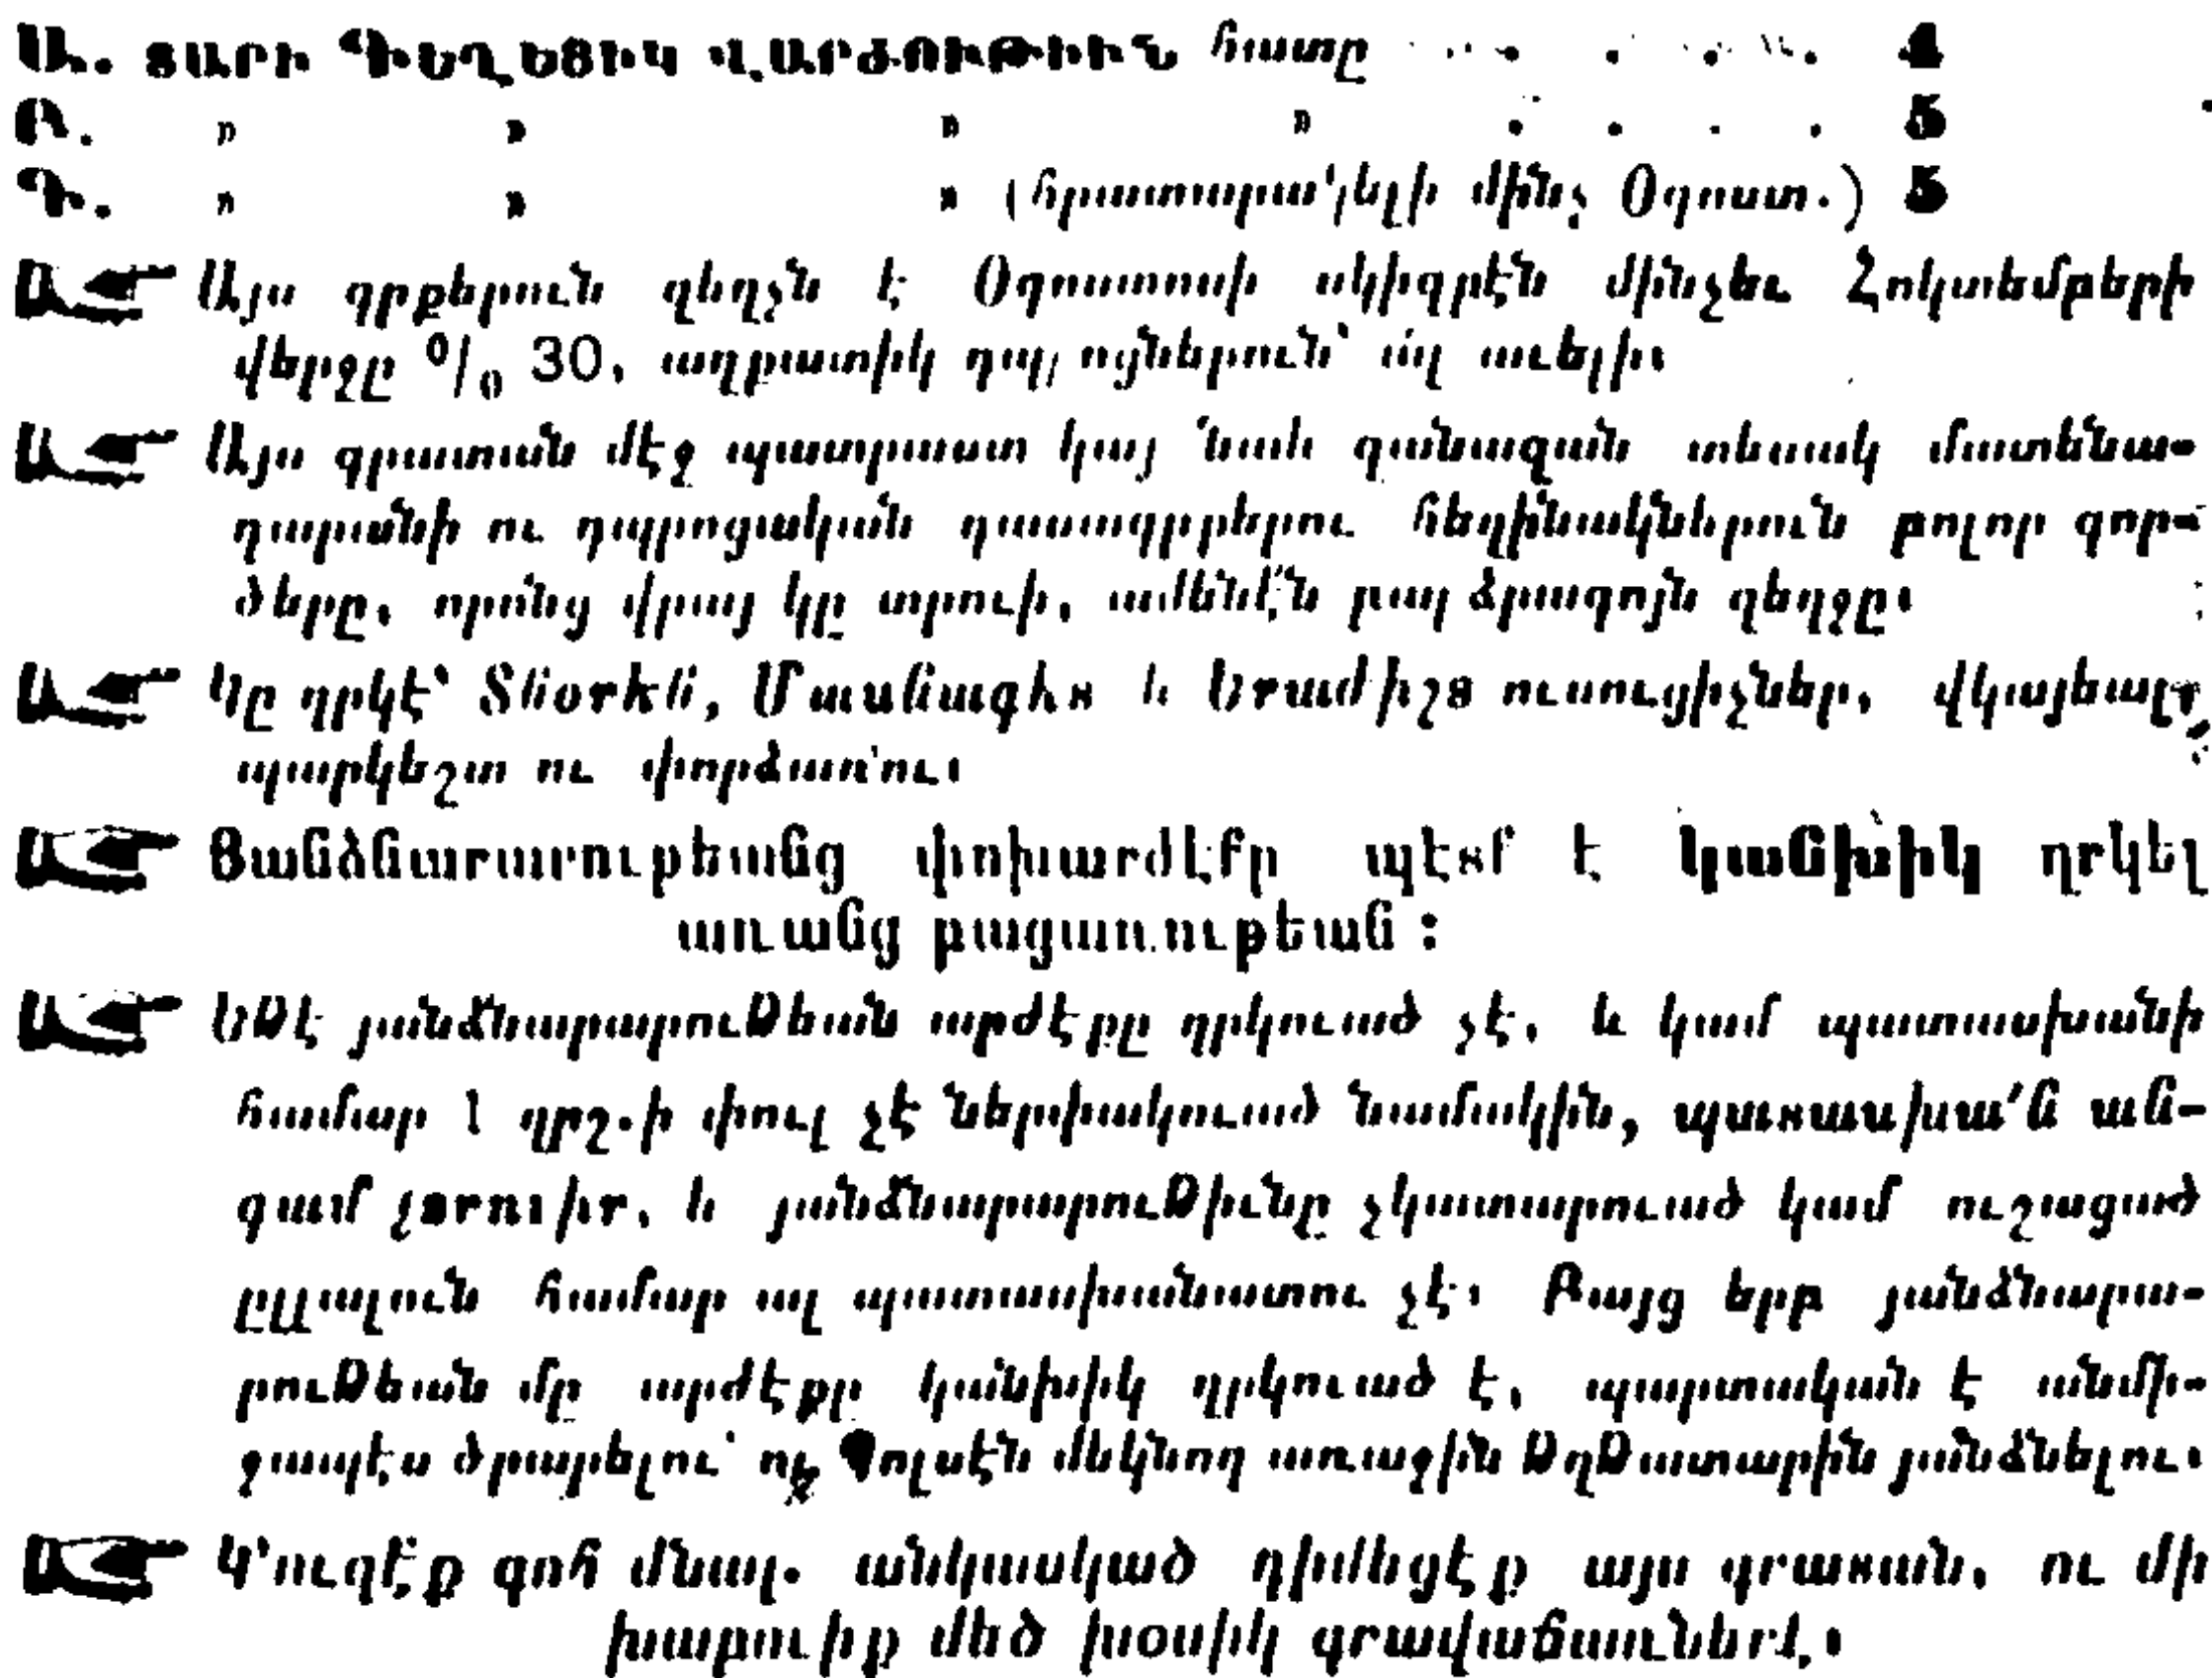 Ա. ՏԱՐԻ ԳԵՂԵՑԻԿ ՎԱՐԺՈՒԹԻՒՆ հատը . . . . 4
Բ. » » » » . . . . 5
Գ. » » » (հրատարա՛կելի մինչ Օգոստ.) 5
Այս գրքերուն զեղչն է Օգոստոսի սկիզբէն մինչեւ Հոկտեմբերի
վերջը % 30, աղքատիկ դպրոցներուն՝ ա՛լ աւելի։
Այս գրատան մէջ պատրաստ կայ նաև զանազան տեսակ մատենա-
դարանի ու դպրոցական դասագրքերու հեղինակներուն բոլոր գոր-
ծերը, որոնց վրայ կը տրուի, ամենէ՛ն բարձրագոյն զեղչը։
Կը ղրկէ՝ Տնօրէն, Մասնագէտ և Երաժիշտ ուսուցիչներ, վկայեալ,
պարկեշտ ու փորձառու։
Յանձնարարութեանց փոխարժէքը պէտք է կանխիկ ղրկել
առանց բացառութեան :
Եթէ յանձնարարութեան արժէքը ղրկուած չէ, և կամ պատասխանի
համար 1 ղրշ.ի փուլ չէ ներփակուած նամակին, պատասխա՛ն ան-
գամ չտրուիր, և յանձնարարութիւնը չկատարուած կամ ուշացած
ըլլալուն համար ալ պատասխանատու չէ։ Բայց երբ յանձնարա-
րութեան մը արժէքը կանխիկ ղրկուած է, պարտական է անմի-
ջապէս ծրարելու՝ ու Պոլսէն մեկնող առաջին թղթատարին յանձնելու։
Կ՚ուզէք գոհ մնալ. անկասկած դիմեցէք այս գրատան, ու մի
խաբուիք մեծ խօսիկ գրավաճառներէ։